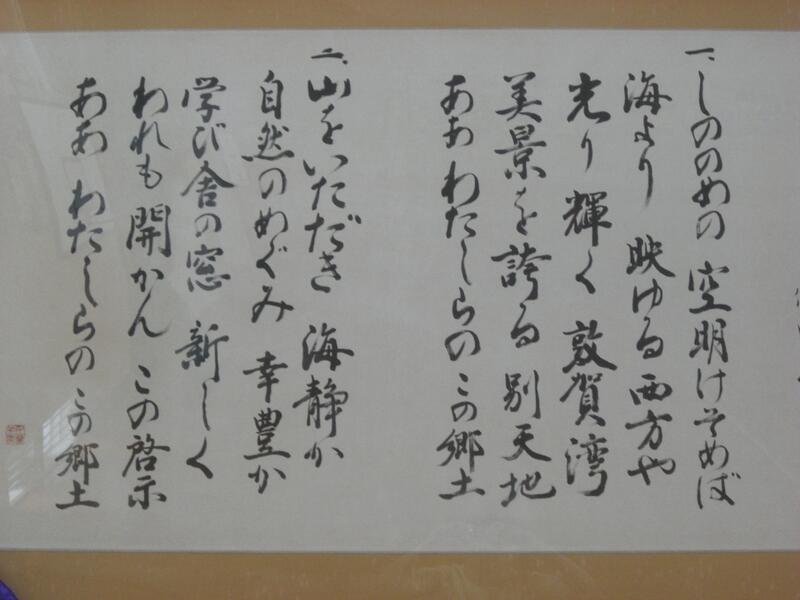 一、しののめの 空明けそめば
海より 映ゆる西方や
光り輝く 敦賀湾
美景を誇る 別天地
ああ わたしらの この郷土
二、山をいただき 海静か
自然のめぐみ 幸豊か
学び舎の窓 新しく
われも開かん この啓示
ああ わたしらの この郷土